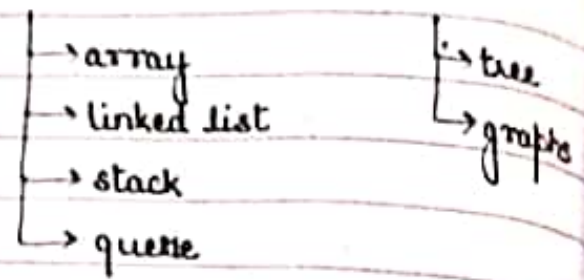 → array
→ linked list
→ stack
→ queue
→ tree
→ graphs